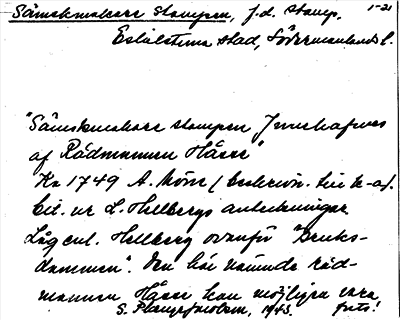 Sämskmakare Stampen, f.d. stamp. 1-21
Eskilstuna stad, Södermanlands l.
"Sämskmakare stampen Innehafves
af Rådmannen Håser"
Ka 1749 A. Möre / beskrivn. till k-a/.
Cit. ur L. Hellbergs anteckningar.
Låg enl. Hellberg ovanför "Bruks-
dammen". Den här nämnde råd-
mannen Håser kan möjligen vara
S. 1943. feels!